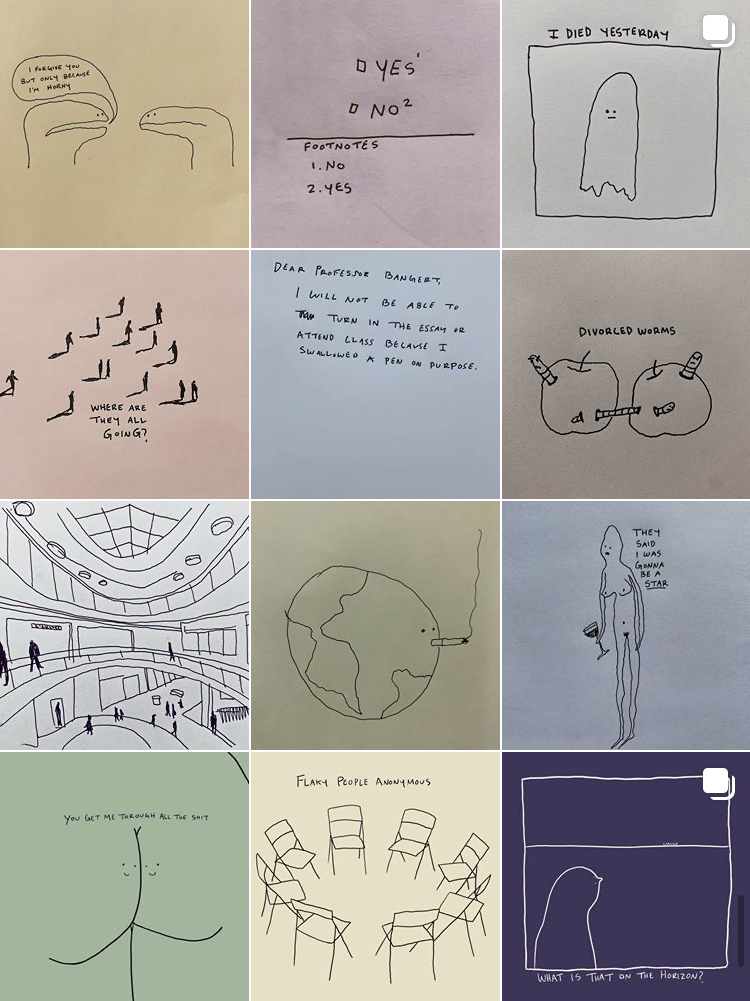 I FORGIVE YOU
BUT ONLY BECAUSE
I'M HORNY
YES¹
NO²
FOOTNOTES
1. NO
2. YES
I DIED YESTERDAY
WHERE ARE
THEY ALL
GOING?
DEAR PROFESSOR BANGERT,
I WILL NOT BE ABLE TO
TURN IN THE ESSAY OR
ATTEND CLASS BECAUSE I
SWALLOWED A PEN ON PURPOSE.
DIVORCED WORMS
THEY
SAID
I WAS
GONNA
BE A
STAR
YOU GET ME THROUGH ALL THE SHIT
FLAKY PEOPLE ANONYMOUS
WHAT IS THAT ON THE HORIZON?